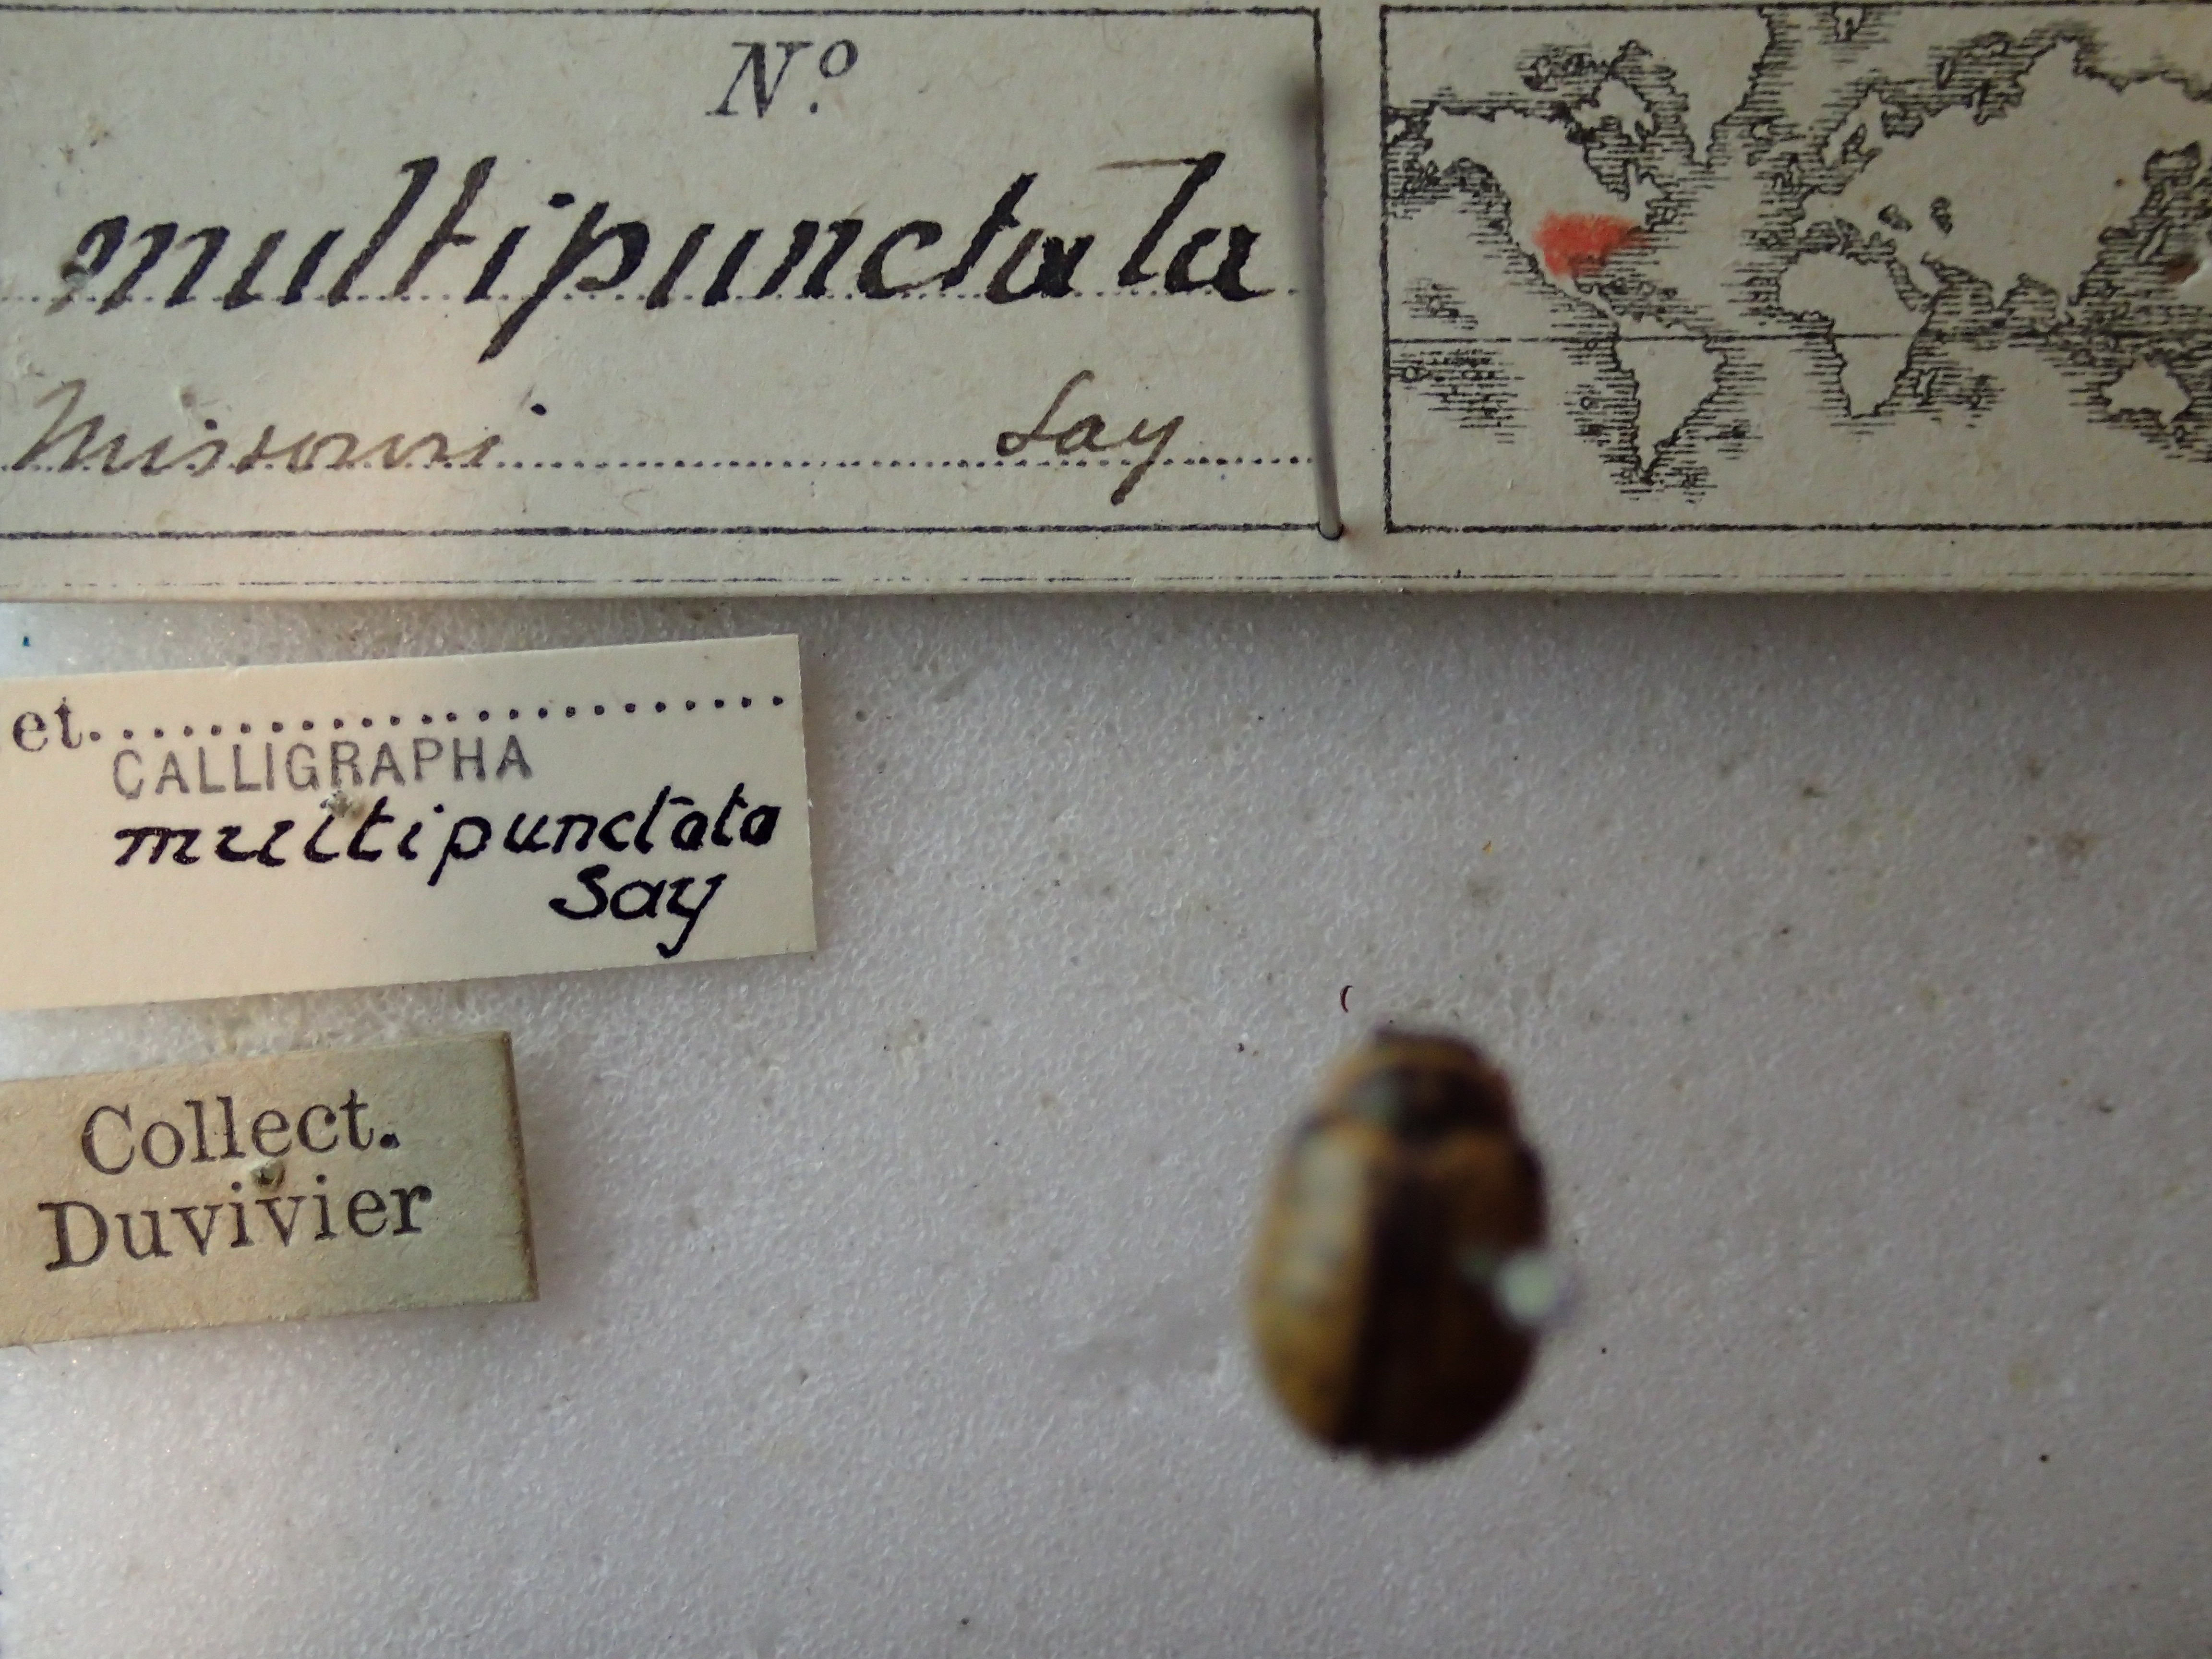 N.º
multipunctata
Missouri Say
et.
CALLIGRAPHA
multipunctata
Say
Collect.
Duvivier